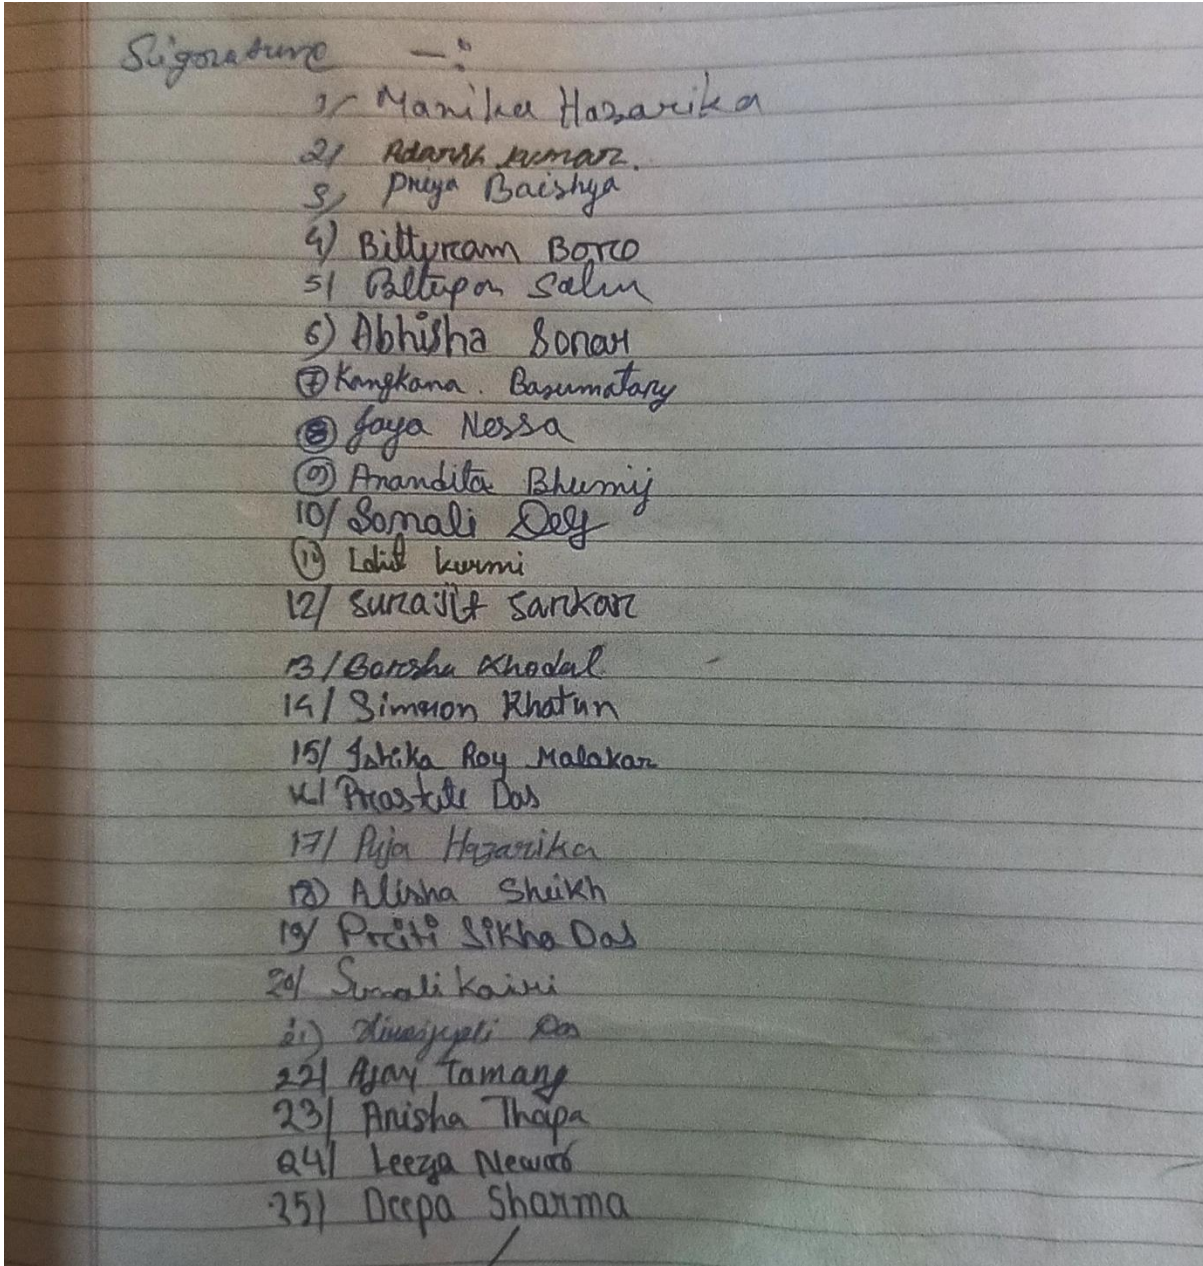 Signature —:
1/ Manika Hazarika
2/ Adarsh kumar.
3/ Priya Baishya
4) Bitturam Boro
5/
6) Abhisha Sonar
7 Kangkana. Basumatary
8 Jaya Nessa
9 Anandita Bhumij
10/ Somali Dey
11 Lohit kurmi
12/ Surajit Sarkar
13/ Barsha Khodal
14/ Simron Khatun
15/ Ishika Roy Malakar
16/ Das
17/ Puja Hazarika
18) Alisha Sheikh
19/ Priti Sikha Das
20/ Sumali Kairi
21) Das
22/ Ajay Tamang
23/ Anisha Thapa
24/ Leeza Newar
25) Deepa Sharma